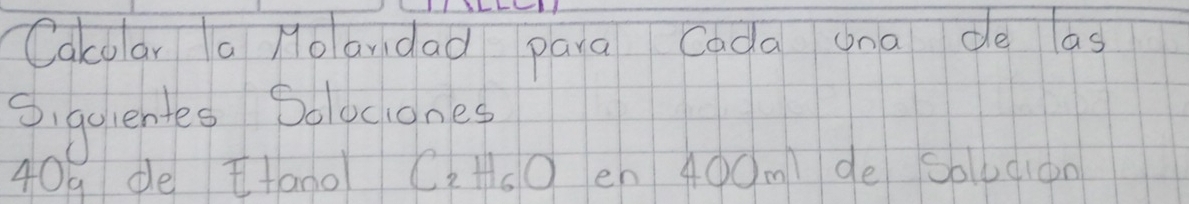 Calcular la Molaridad para Cada una de las
Siguientes Soluciones
40g de Etanol C₂H₆O en 400ml de Solución